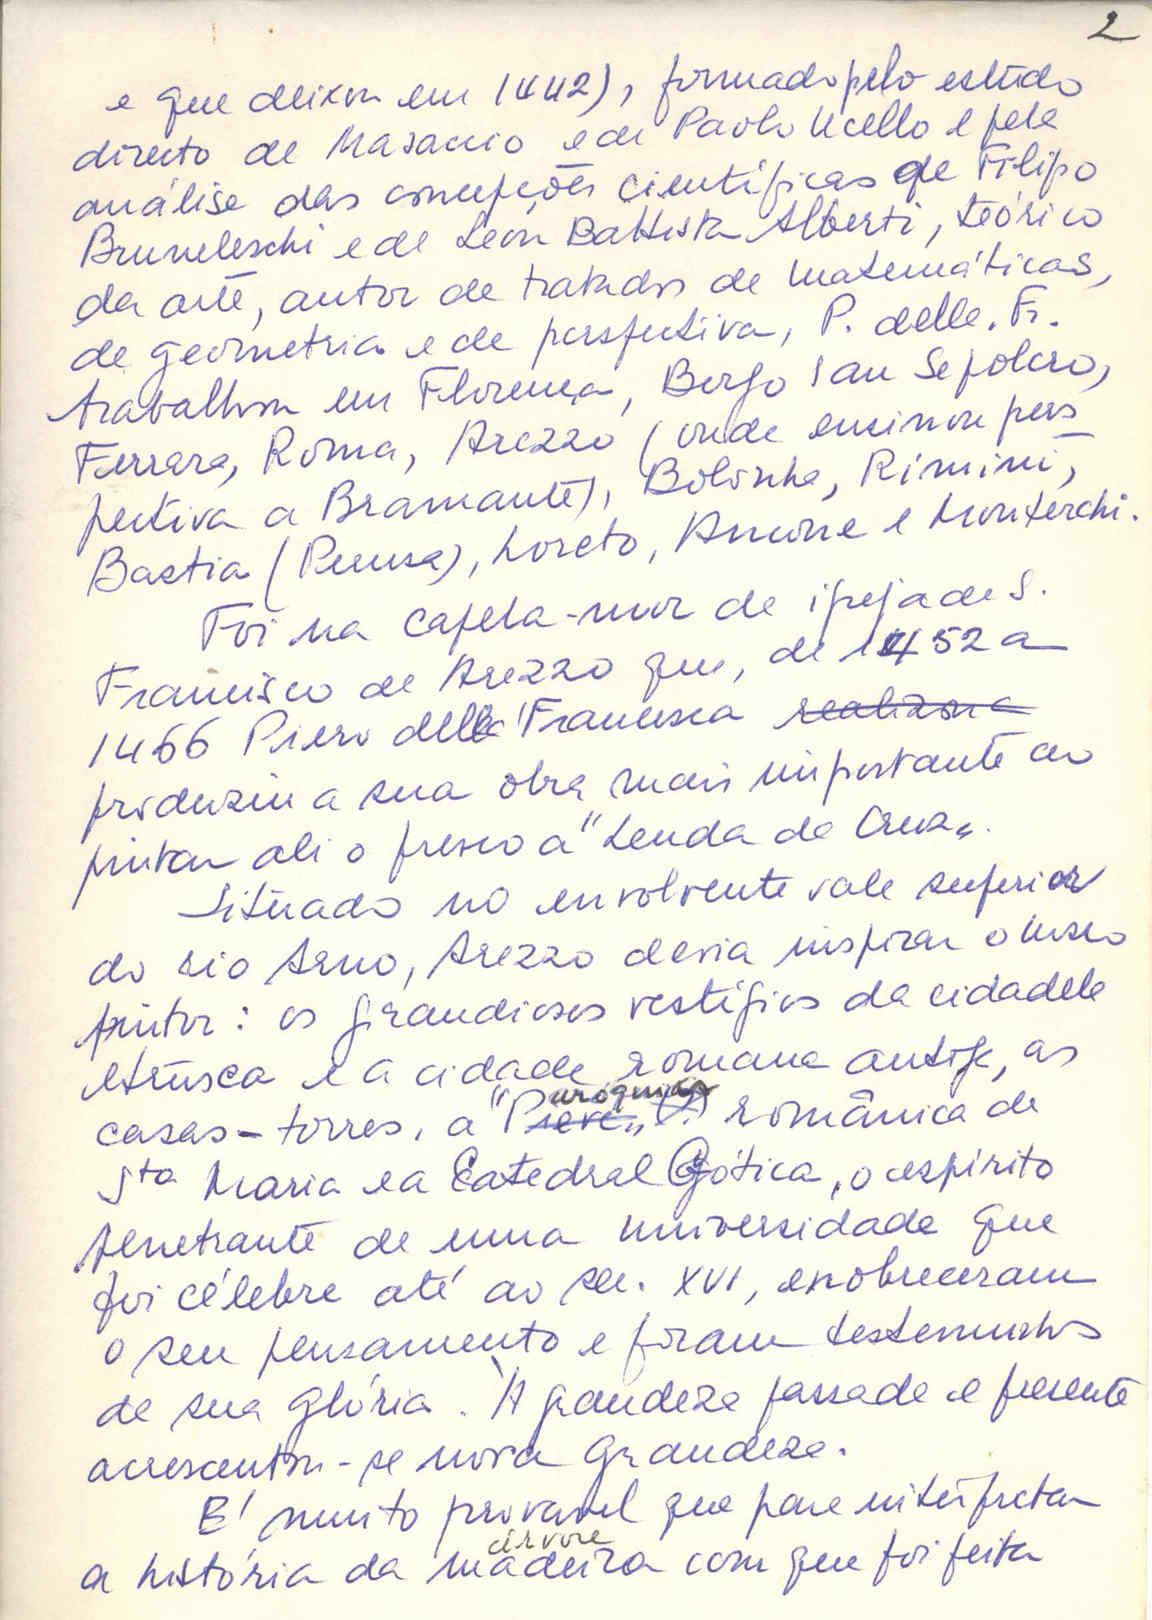 2
e que deixou em 1442), formado pelo estudo
directo de Masaccio e de Paolo Ucello e pela
análise das concepções científicas de Filipo
Bruneleschi e de Leon Battista Alberti, teórico
da arte, autor de tratados de matemáticas,
de geometria e de perspectiva, P. della. Fr.
trabalhou em Florença, Borgo San Sepolcro,
Ferrara, Roma, Arezzo (onde ensinou pers
pectiva a Bramante), Bolonha, Rimini,
Bastia (Perusa), Loreto, Ancone e Monterchi.
Foi na capela-mor de igreja de S.
Francisco de Arezzo que, de 1452 a
1466 Piero della Francesca realizou a
produziu a sua obra mais importante ao
pintar ali o fresco a "Lenda da Cruz".
Situado no envolvente vale superior
do rio Arno, Arezzo devia inspirar o nosso
pintor: os grandiosos vestígios da cidadela
etrusca e a cidade romana antiga, as
casas-torres, a "Pieve" (?) românica de
aróquia
Sta Maria e a Catedral Gótica, o espírito
penetrante de uma universidade que
foi célebre até ao séc. XVI, enobreceram
o seu pensamento e foram testemunhos
de sua glória. À grandeza passada e presente
acrescentou-se nova grandeza.
É muito provavel que para interpretar
árvore
a história da madeira com que foi feita